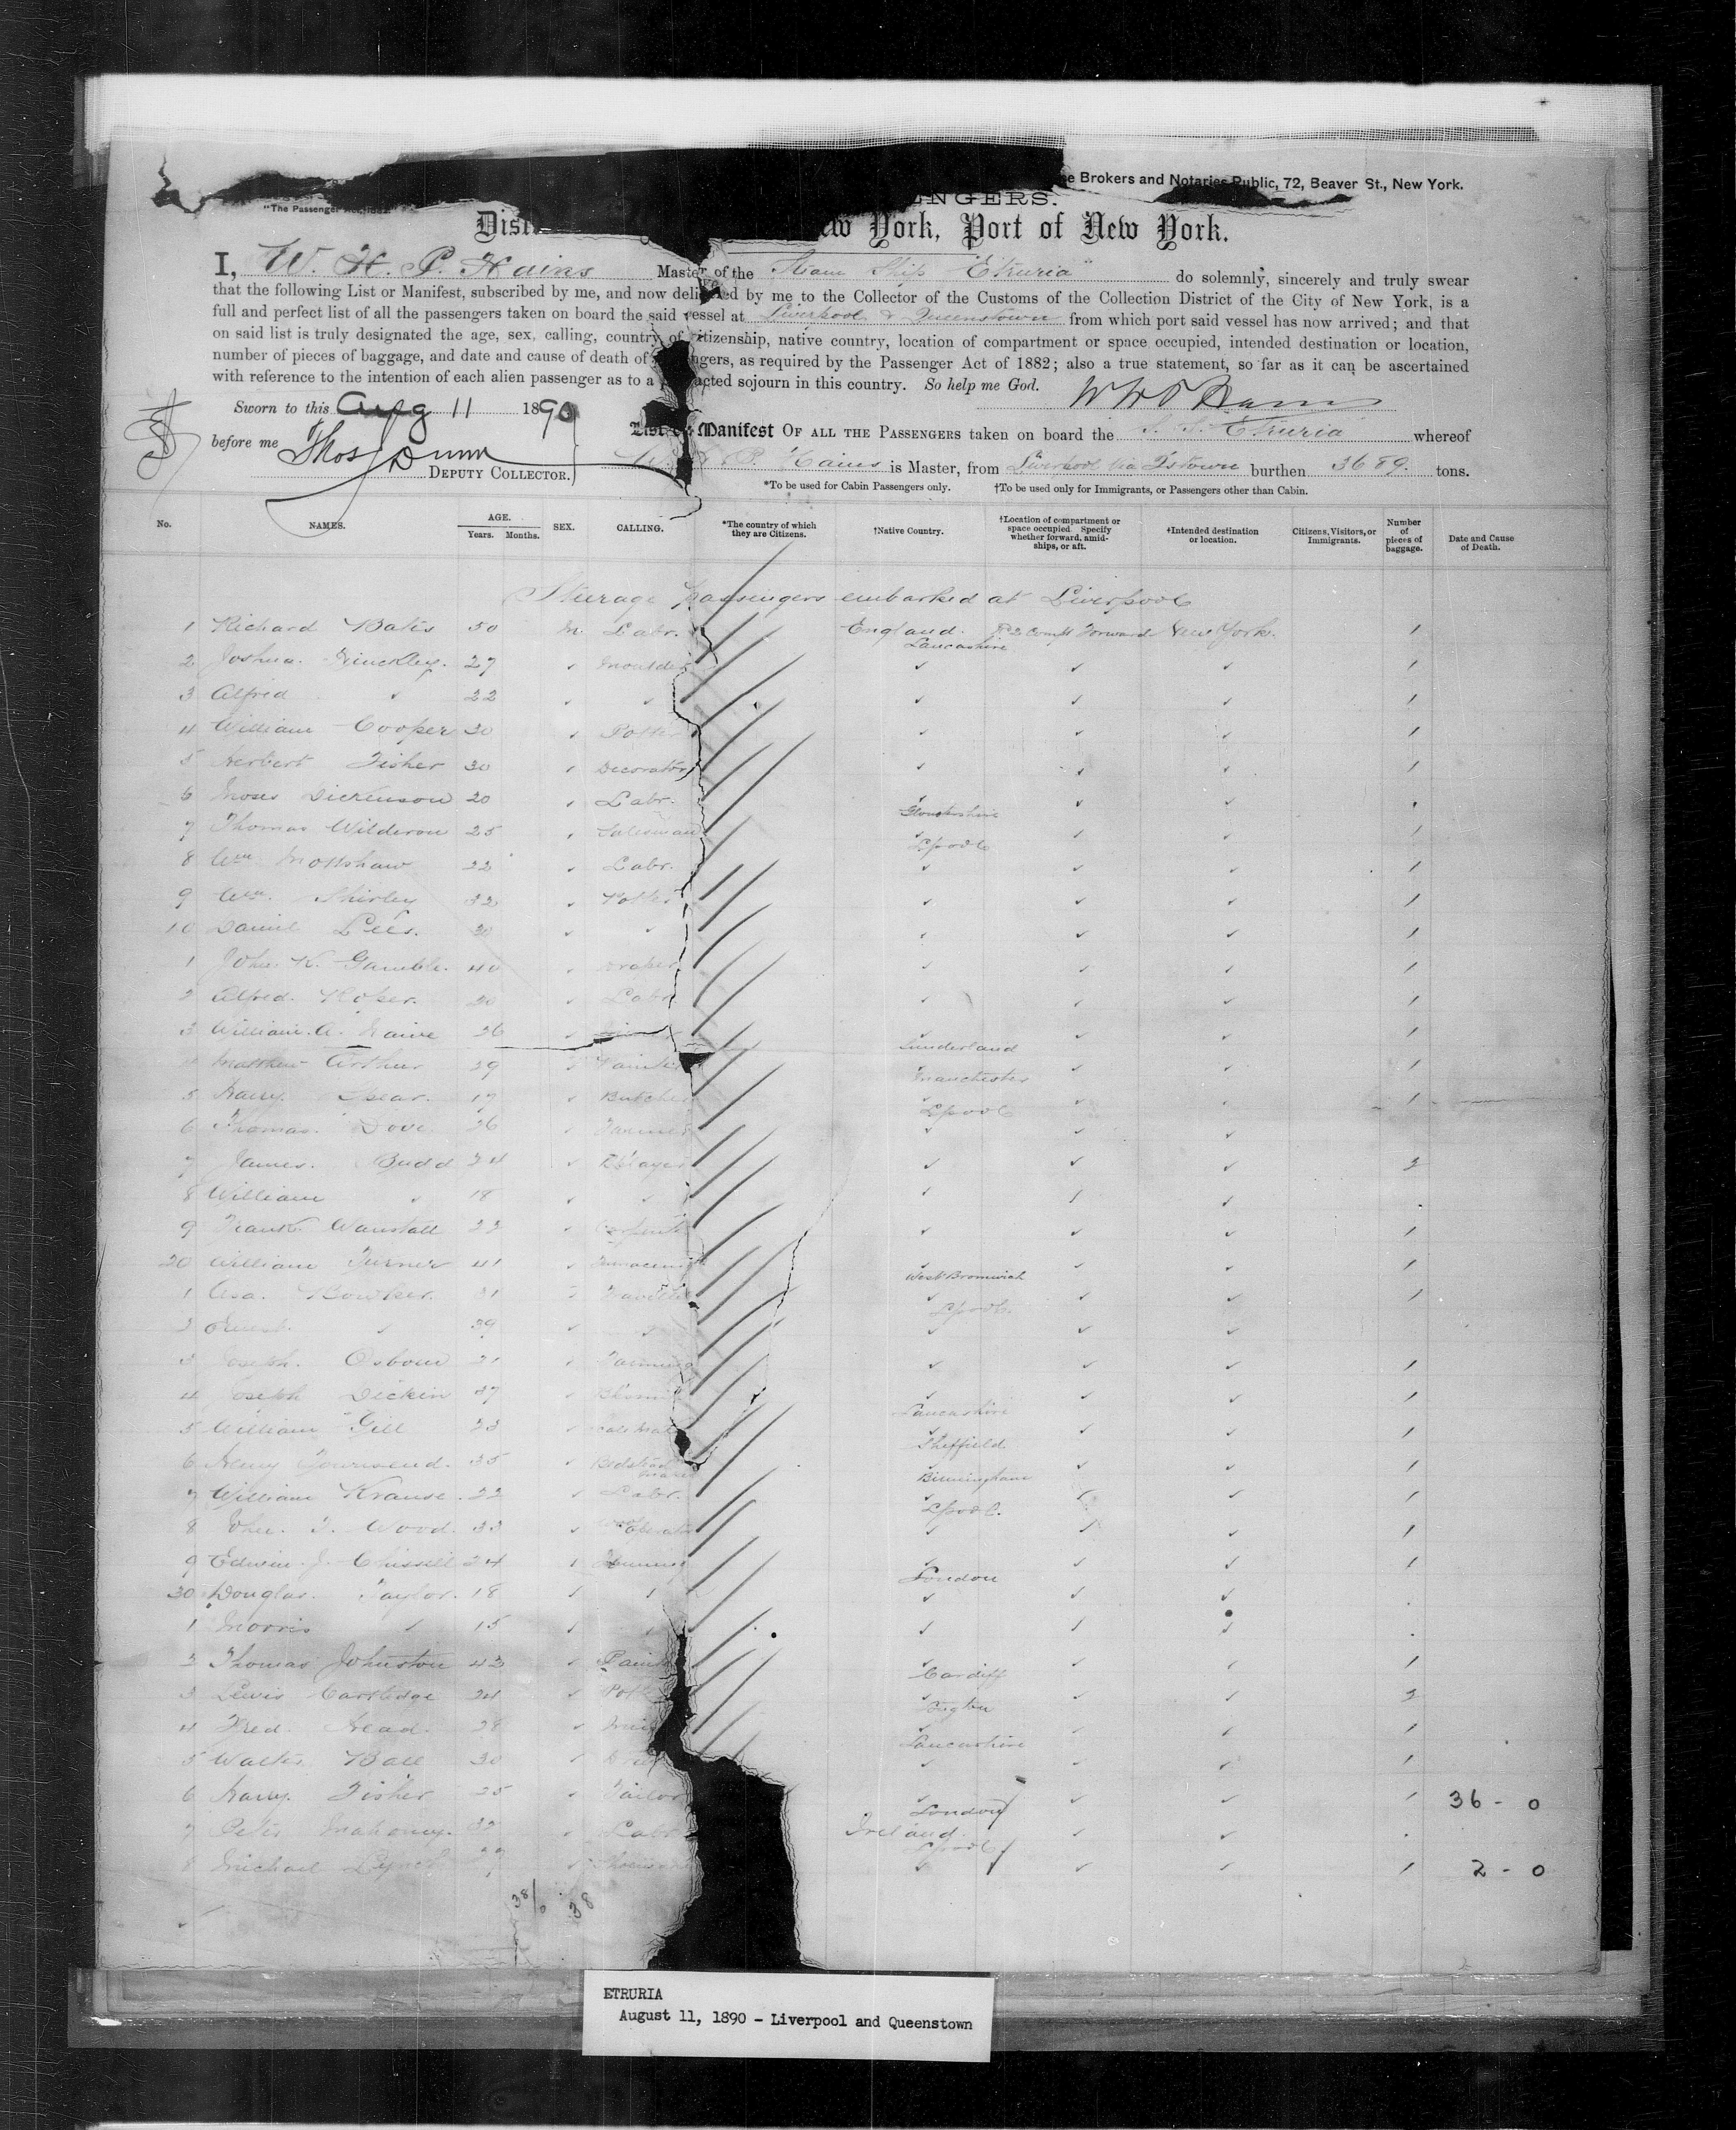 e Brokers and Notaries Public, 72, Beaver St., New York.
"The Passenger
ENGERS.
Dist ew York, Port of New York.
I, W. H. P. Hains Master of the Steam Ship "Etruria" do solemnly, sincerely and truly swear
that the following List or Manifest, subscribed by me, and now delivered by me to the Collector of the Customs of the Collection District of the City of New York, is a
full and perfect list of all the passengers taken on board the said vessel at Liverpool & Queenstown from which port said vessel has now arrived; and that
on said list is truly designated the age, sex, calling, country of citizenship, native country, location of compartment or space occupied, intended destination or location,
number of pieces of baggage, and date and cause of death of ngers, as required by the Passenger Act of 1882; also a true statement, so far as it can be ascertained
with reference to the intention of each alien passenger as to a p acted sojourn in this country. So help me God. W H P Hains
Sworn to this Aug 11 1890
before me Thos Dunn
DEPUTY COLLECTOR.
List or Manifest OF ALL THE PASSENGERS taken on board the S. S. Etruria whereof
P. Hains is Master, from Liverpool via Qstown burthen 3689. tons.
*To be used for Cabin Passengers only. †To be used only for Immigrants, or Passengers other than Cabin.
No. NAMES. AGE. Years. Months. SEX. CALLING. *The country of which they are Citizens. †Native Country. †Location of compartment or space occupied. Specify whether forward, amidships, or aft. †Intended destination or location. Citizens, Visitors, or Immigrants. Number of pieces of baggage. Date and Cause of Death.
Steerage passengers embarked at Liverpool
1 Richard Bates 50 M. Labr. England. Lancashire 2 Compt Forward New York. 1
2 Joshua Hinckley. 27 ✓ Moulder ✓ ✓ ✓ 1
3 Alfred ✓ 22 ✓ ✓ ✓ ✓ ✓ 1
4 William Cooper 30 ✓ Potter ✓ ✓ ✓ 1
5 Herbert Fisher 30 ✓ Decorator ✓ ✓ ✓ 1
6 Moses Dickenson 20 ✓ Labr. ✓ Gloustershire ✓ ✓
7 Thomas 25 ✓ Salesman ✓ Lpool ✓ ✓ 1
8 Wm Mottshaw 22 ✓ Labr. ✓ ✓ ✓ 1
9 Wm. Shirley 32 ✓ Potter ✓ ✓ ✓ 1
10 Daniel Lees. 30 ✓ ✓ ✓ ✓ 1
1 John K. Gamble. 40 ✓ Draper ✓ ✓ ✓ 1
2 Alfred. Roper. 20 ✓ Labr ✓ ✓ ✓ 1
3 William. A. 26 ✓ ✓ Sunderland ✓ ✓ 1
4 Matthew Arthur 29 ✓ Painter Manchester ✓ ✓ 1
5 Harry. Spear. 17 ✓ Butcher ✓ Lpool ✓ ✓ 1
6 Thomas. Dove 26 ✓ Farmer ✓ ✓ ✓
7 James. Budd 24 ✓ ✓ ✓ ✓ 2
8 William ✓ 18 ✓ ✓ ✓ ✓ ✓
9 Frank Wanstall 22 ✓ Carpenter ✓ ✓ ✓ 1
20 William Turner 41 ✓ ✓ West Bromwich ✓ ✓ 1
1 Asa. Bowker. 31 ✓ Lpool. ✓ ✓ 1
2 ✓ 39 ✓ ✓ ✓ ✓ ✓
3 Joseph. Osbourn 21 ✓ Farming ✓ ✓ ✓ 1
4 Joseph Dickin 37 ✓ ✓ Lancashire ✓ ✓ 1
5 William Gill 23 ✓ ✓ Sheffield ✓ ✓ 1
6 Henry Townsend. 35 ✓ Bedstead maker ✓ Birmingham ✓ ✓ 1
7 William Krause. 22 ✓ Labr. ✓ Lpool. ✓ ✓ 1
8 John. T. Wood. 33 ✓ ✓ ✓ ✓ 1
9 Edwin. J. Chissell 24 ✓ Farming ✓ London ✓ ✓ 1
30 Douglas. Taylor. 18 ✓ ✓ ✓ ✓ ✓
1 Morris ✓ 15 ✓ ✓ ✓ ✓ ✓
2 Thomas Johnston 43 ✓ Paint ✓ Cardiff ✓ ✓ 1
3 Lewis Cartledge 24 ✓ Pott ✓ ✓ ✓ 2
4 Fred. Head. 28 ✓ ✓ Lancashire ✓ ✓ 1
5 Walter Ball 30 ✓ ✓ ✓ ✓ 1
6 Harry. Fisher 25 ✓ Tailor ✓ London ✓ ✓ 1 36 - 0
7 Peter Mahoney. 32 ✓ Labr Ireland. Lpool ✓ ✓
8 Michael Lynch 27 ✓ ✓ ✓ ✓ 1 2 - 0
38/0 38
ETRURIA
August 11, 1890 - Liverpool and Queenstown